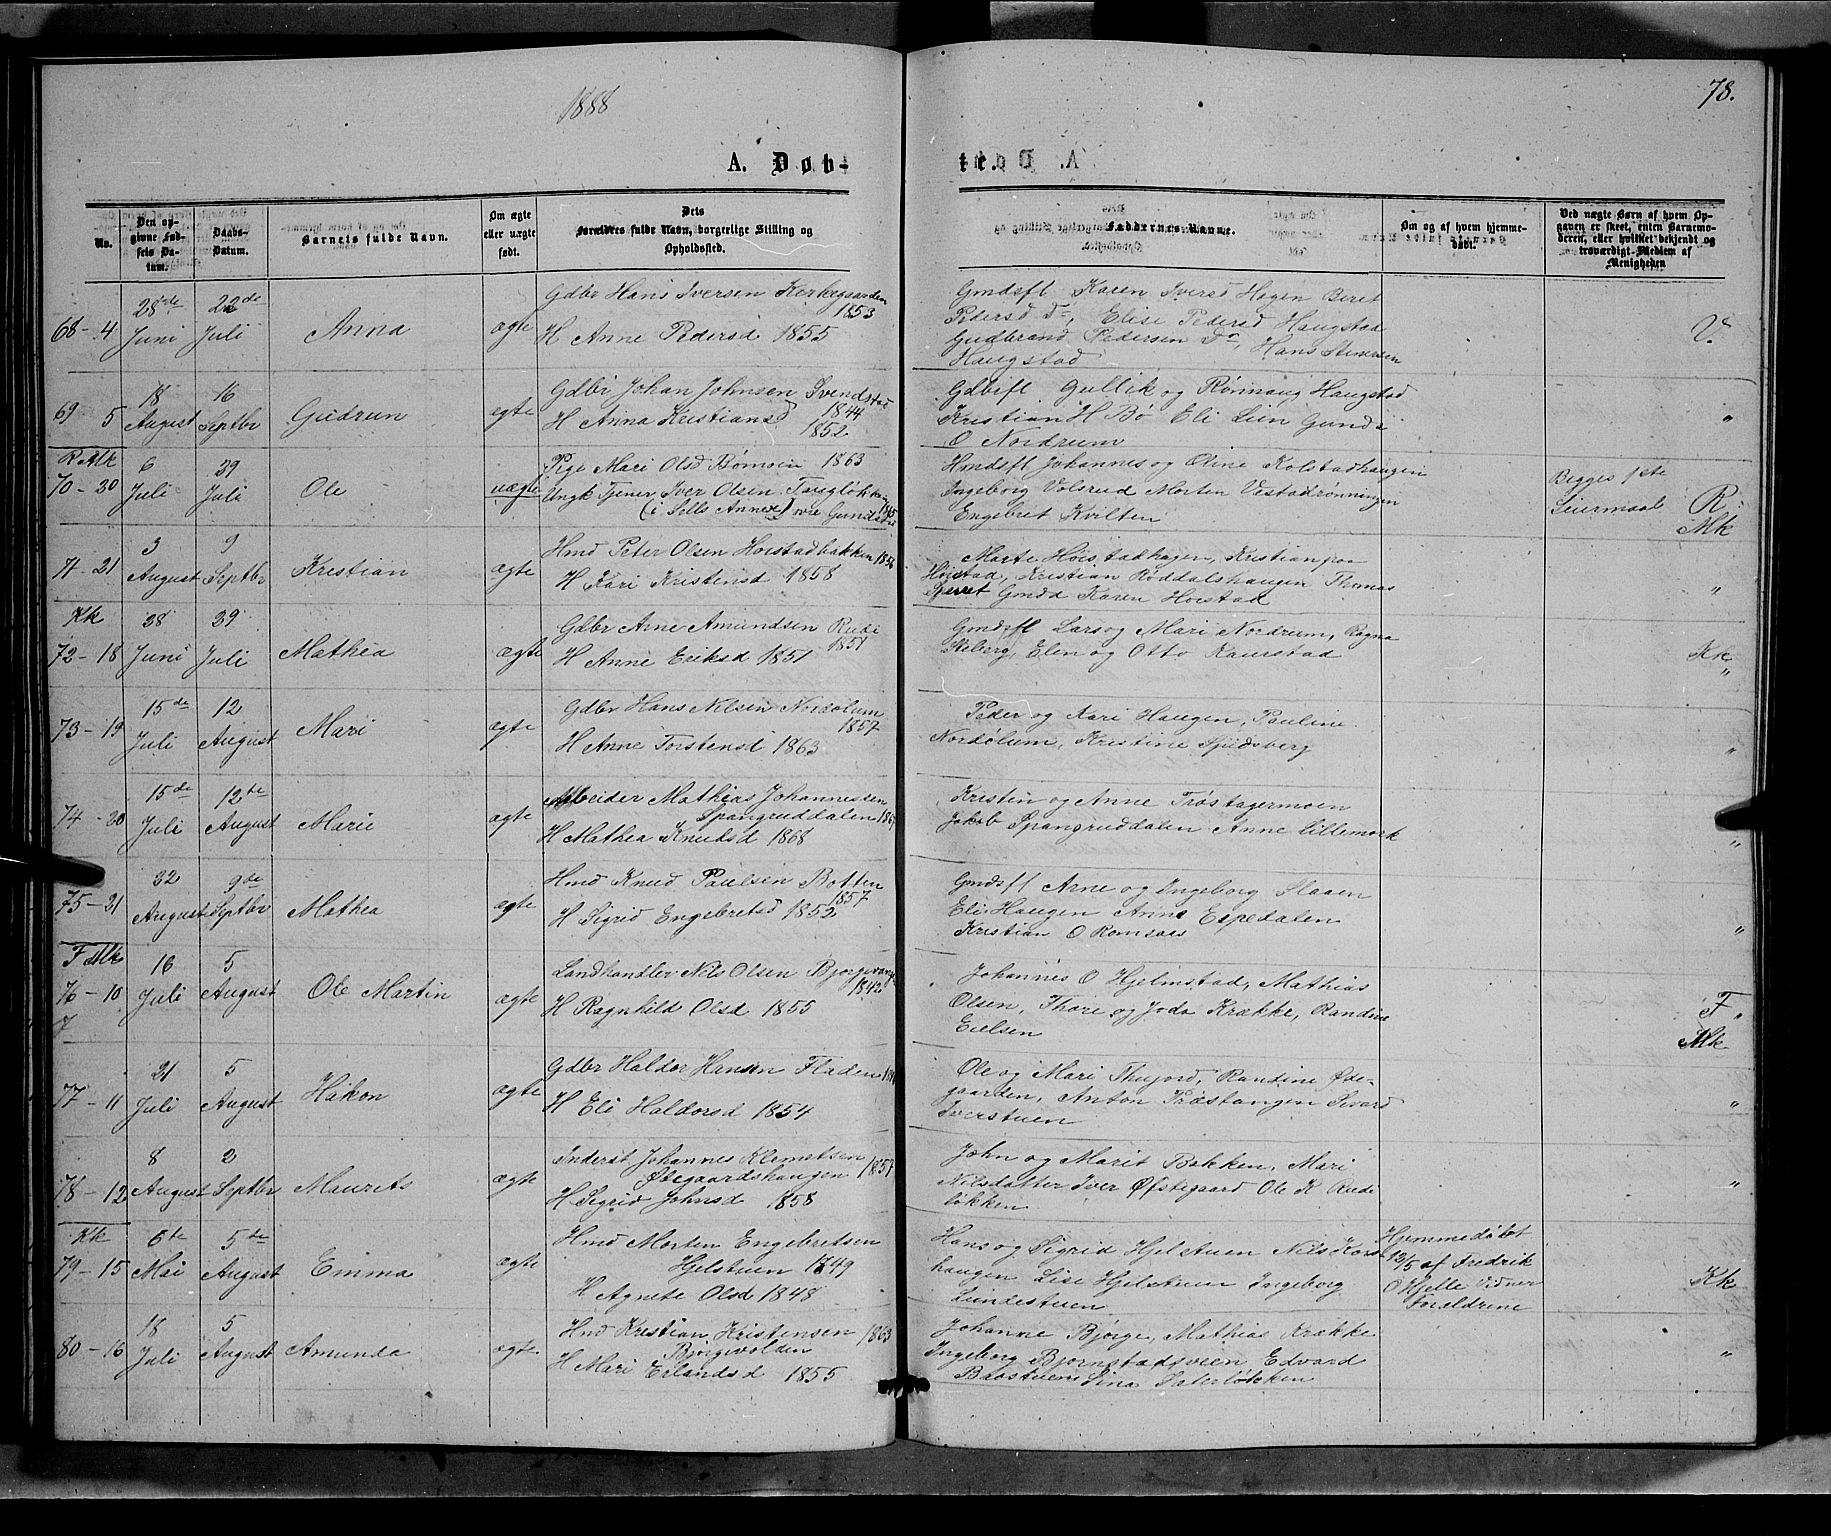 1888
78.
A. Døb-
te.
No.
Den op-
givne Fød-
sels Da-
tum.
Daabs-
Datum.
Barnets fulde Navn.
Om ægte
eller uægte
født.
Dets
Forældres fulde Navn, borgerlige Stilling og
Opholdssted.
Faddernes Navne.
Om og af hvem hjemme-
døbt.
Ved uægte Børn af hvem Op-
gaven er skeet, enten Barnemo-
deren, eller hvilket bekjendt og
troværdigt Medlem af
Menigheden
68-4
28de Juni
22de Juli
Anna
ægte
Gdbr Hans Iversen Kirkegaarden
1853
H Anne Pedersd 1855
Gmdsfl Karen Iversd Hagen Beret
Pedersd Do, Elise Pedersd Haugstad
Gudbrand Pedersen Do, Hans Simensen
Haugstad
V.
69 5
18 August
16 Septbr
Gudrun
ægte
Gdbr Johan Johnsen Svendstad
1844
H Anna Kristiansd
1852
Gdbrfl Gullik og Rønnaug Haugstad
Kristian H Bø Eli Lien Gunda
O Nordrum
"
R Mk
70-20
6 Juli
29 Juli
Ole
uægte
Pige Mari Olsd Bømoen 1863
Ungk Tjener Iver Olsen
(i Sells Annex)
Hmdsfl Johannes og Oline Kolstadhaugen
Ingeborg Volsrud Morten Vestadrønningen
Engebret Kvilten
Begges 1ste
Leiermaal
R
Mk
71-21
3 August
9 Septbr
Kristian
ægte
Hmd Peter Olsen Hoistadbakken 1856
H Kari Kristensd 1858
Marte Hoistadhagen, Kristian paa
Hoistad, Kristian Røddalshaugen Thomas
Gmdd Karen Hoistad
"
Kk
72-18
28 Juni
29 Juli
Mathea
ægte
Gdbr Arne Amundsen Rudi
1851
H Anne Eriksd 1851
Gmdsfl Lars og Mari Nordrum, Ragna
Steberg, Elen og Otto Kaurstad
Kk
"
73-19
15de Juli
12 August
Mari
ægte
Gdbr Hans Nilsen Nordølum
1857
H Anne Torstensd 1863
Peder og Kari Haugen, Pauline
Nordølum, Kristine Sjudsberg
"
74-20
15de Juli
12te August
Marie
ægte
Arbeider Mathias Johannessen
Spangruddalen
H Mathea Knudsd 1868
Kristin og Anne Trøstagermoen
Jakob Spangruddalen Anne Lillemork
"
75-21
22 August
9de Septbr
Mathea
ægte
Hmd Knud Paulsen Botten
1857
H Sigrid Engebretsd 1852
Gmdsfl Arne og Ingeborg Slaaen
Eli Haugen Anne Espedalen
Kristian O Romsaas
"
F Mk
76-10
7
16 Juli
5 August
Ole Martin
ægte
Landhandler Nils Olsen
1842
H Ragnhild Olsd 1855
Johannes O Hjelmstad, Mathias
Olsen, Thore og Joda Krække, Randine
Eielsen
F "
Mk
77-11
21 Juli
5 August
Håkon
ægte
Gdbr Haldor Hansen Fladen
H Eli Haldorsd 1854
Ole og Mari Thujord, Randine Øde-
gaarden, Anton Trøstangen Sivard
Iverstuen
"
78-12
8 August
2 Septbr
Maurits
ægte
Inderst Johannes Klemetsen 1857
Østegaardshaugen
H Sigrid Johnsd 1858
John og Marit Bakken, Mari
Nilsdatter Iver Øfstegaard Ole K Rudi
løkken
"
Kk
79-15
6te Mai
5te August
Emma
ægte
Hmd Morten Engebretsen
Hjelstuen 1849
H Agnete Olsd 1848
Hans og Sigrid Hjelstuen Nils Kors
haugen Lise Hjelstuen Ingeborg
Lundestuen
Hjemmedøbt
12/5 af Fredrik
O Hjelle Vidner
Foreldrine
Kk
80-16
18 Juli
5 August
Amunda
ægte
Hmd Kristian Kristensen 1863
Bjørgevolden
H Mari Erlandsd 1855
Johanne Bjørge, Mathias Krække
Ingeborg Bjørnstadsveen, Edvard
Baastuen Lina Saterløkken
"